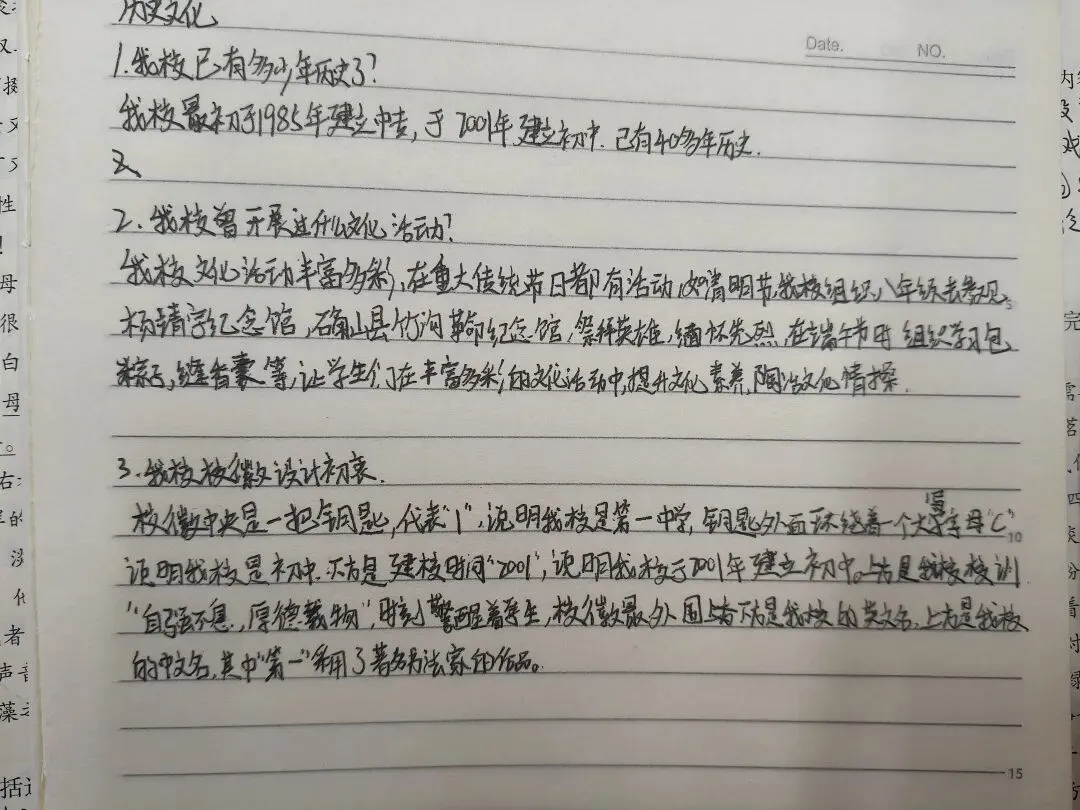 历史文化
Date. NO.
1.我校已有多少年历史了?
我校最初于1985年建立中专,于2001年建立初中.已有40多年历史.
2.我校曾开展过什么文化活动?
我校文化活动丰富多彩,在重大传统节日都有活动,如清明节,我校组织八年级去参观
5
杨靖宇纪念馆,确山县竹沟革命纪念馆,祭拜英雄,缅怀先烈,在端午节时组织学习包
粽子,缝香囊等,让学生们在丰富多彩的文化活动中,提升文化素养,陶冶文化情操.
3.我校校徽设计初衷.
校徽中央是一把钥匙,代表"1",说明我校是第一中学,钥匙外面环绕着一个大写字母"C"
10
说明我校是初中.下方是建校时间"2001",说明我校于2001年建立初中。上方是我校校训
"自强不息,厚德载物",时刻警醒着学生,校徽最外围下方是我校的英文名.上方是我校
的中文名,其中"第一"采用了著名书法家的作品。
15